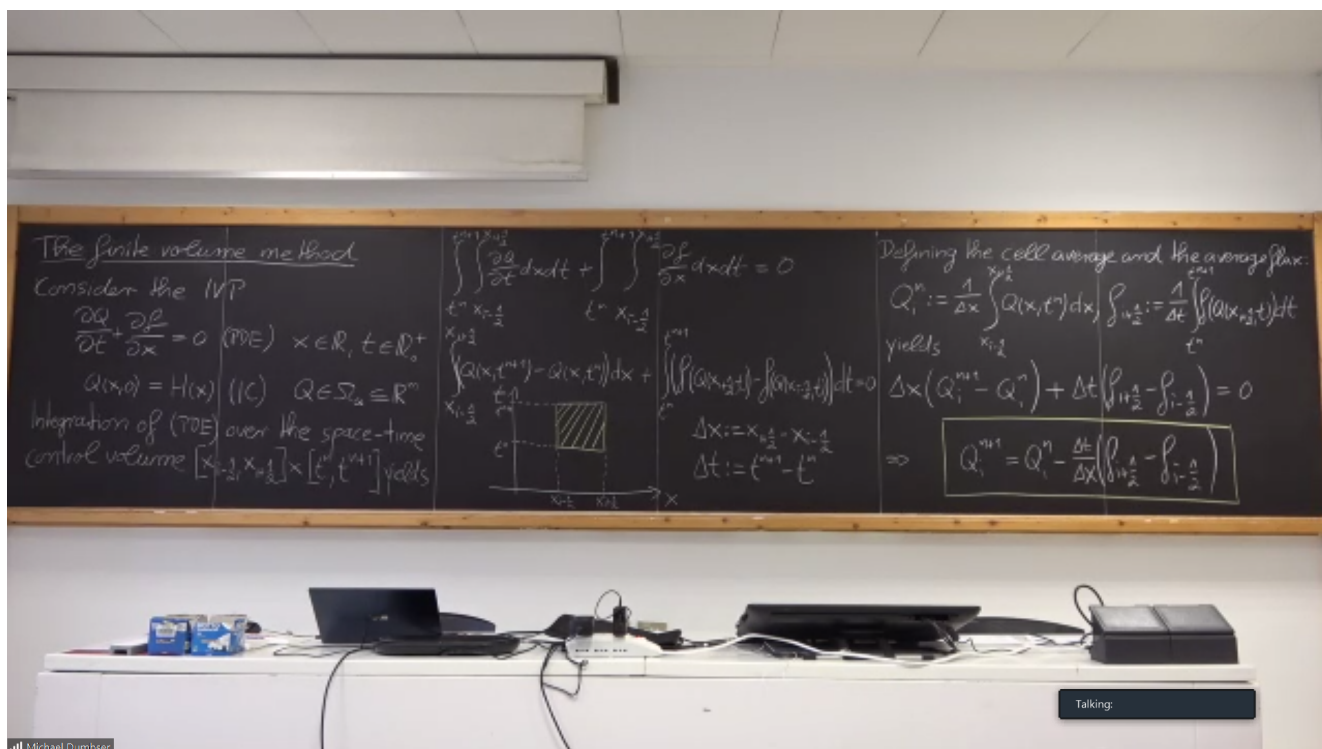 The finite volume method
Consider the IVP
∂Q/∂t + ∂f/∂x = 0 (PDE) x ∈ ℝ, t ∈ ℝ₀⁺
Q(x,0) = H(x) (IC) Q ∈ Ω_Q ⊆ ℝᵐ
Integration of (PDE) over the space-time
control volume [x_{i-1/2}, x_{i+1/2}] × [tⁿ, tⁿ⁺¹] yields
∫_{tⁿ}^{tⁿ⁺¹} ∫_{x_{i-1/2}}^{x_{i+1/2}} ∂Q/∂t dx dt + ∫_{tⁿ}^{tⁿ⁺¹} ∫_{x_{i-1/2}}^{x_{i+1/2}} ∂f/∂x dx dt = 0
∫_{x_{i-1/2}}^{x_{i+1/2}} (Q(x,tⁿ⁺¹) - Q(x,tⁿ)) dx + ∫_{tⁿ}^{tⁿ⁺¹} (f(Q(x_{i+1/2},t)) - f(Q(x_{i-1/2},t))) dt = 0
tⁿ⁺¹
tⁿ
x_{i-1/2} x_{i+1/2} x
Δx := x_{i+1/2} - x_{i-1/2}
Δt := tⁿ⁺¹ - tⁿ
Defining the cell average and the average flux:
Q_iⁿ := 1/Δx ∫_{x_{i-1/2}}^{x_{i+1/2}} Q(x,tⁿ) dx, f_{i+1/2} := 1/Δt ∫_{tⁿ}^{tⁿ⁺¹} f(Q(x_{i+1/2},t)) dt
yields
Δx (Q_iⁿ⁺¹ - Q_iⁿ) + Δt (f_{i+1/2} - f_{i-1/2}) = 0
⇒ Q_iⁿ⁺¹ = Q_iⁿ - Δt/Δx (f_{i+1/2} - f_{i-1/2})
Talking:
Michael Dumbser